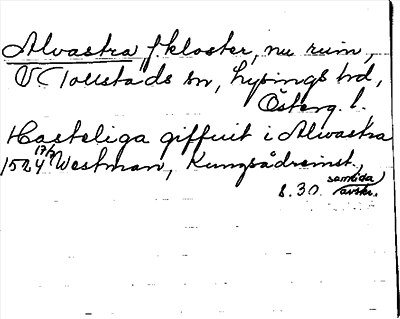 Alvastra f kloster, nu ruin,
V Tollstads sn, Lysings hd,
Österg. l.
Hasteliga giffuit i Alwastra
1524 17/7 Westman, Kungsådreinst.,
s. 30. samtida avskr.